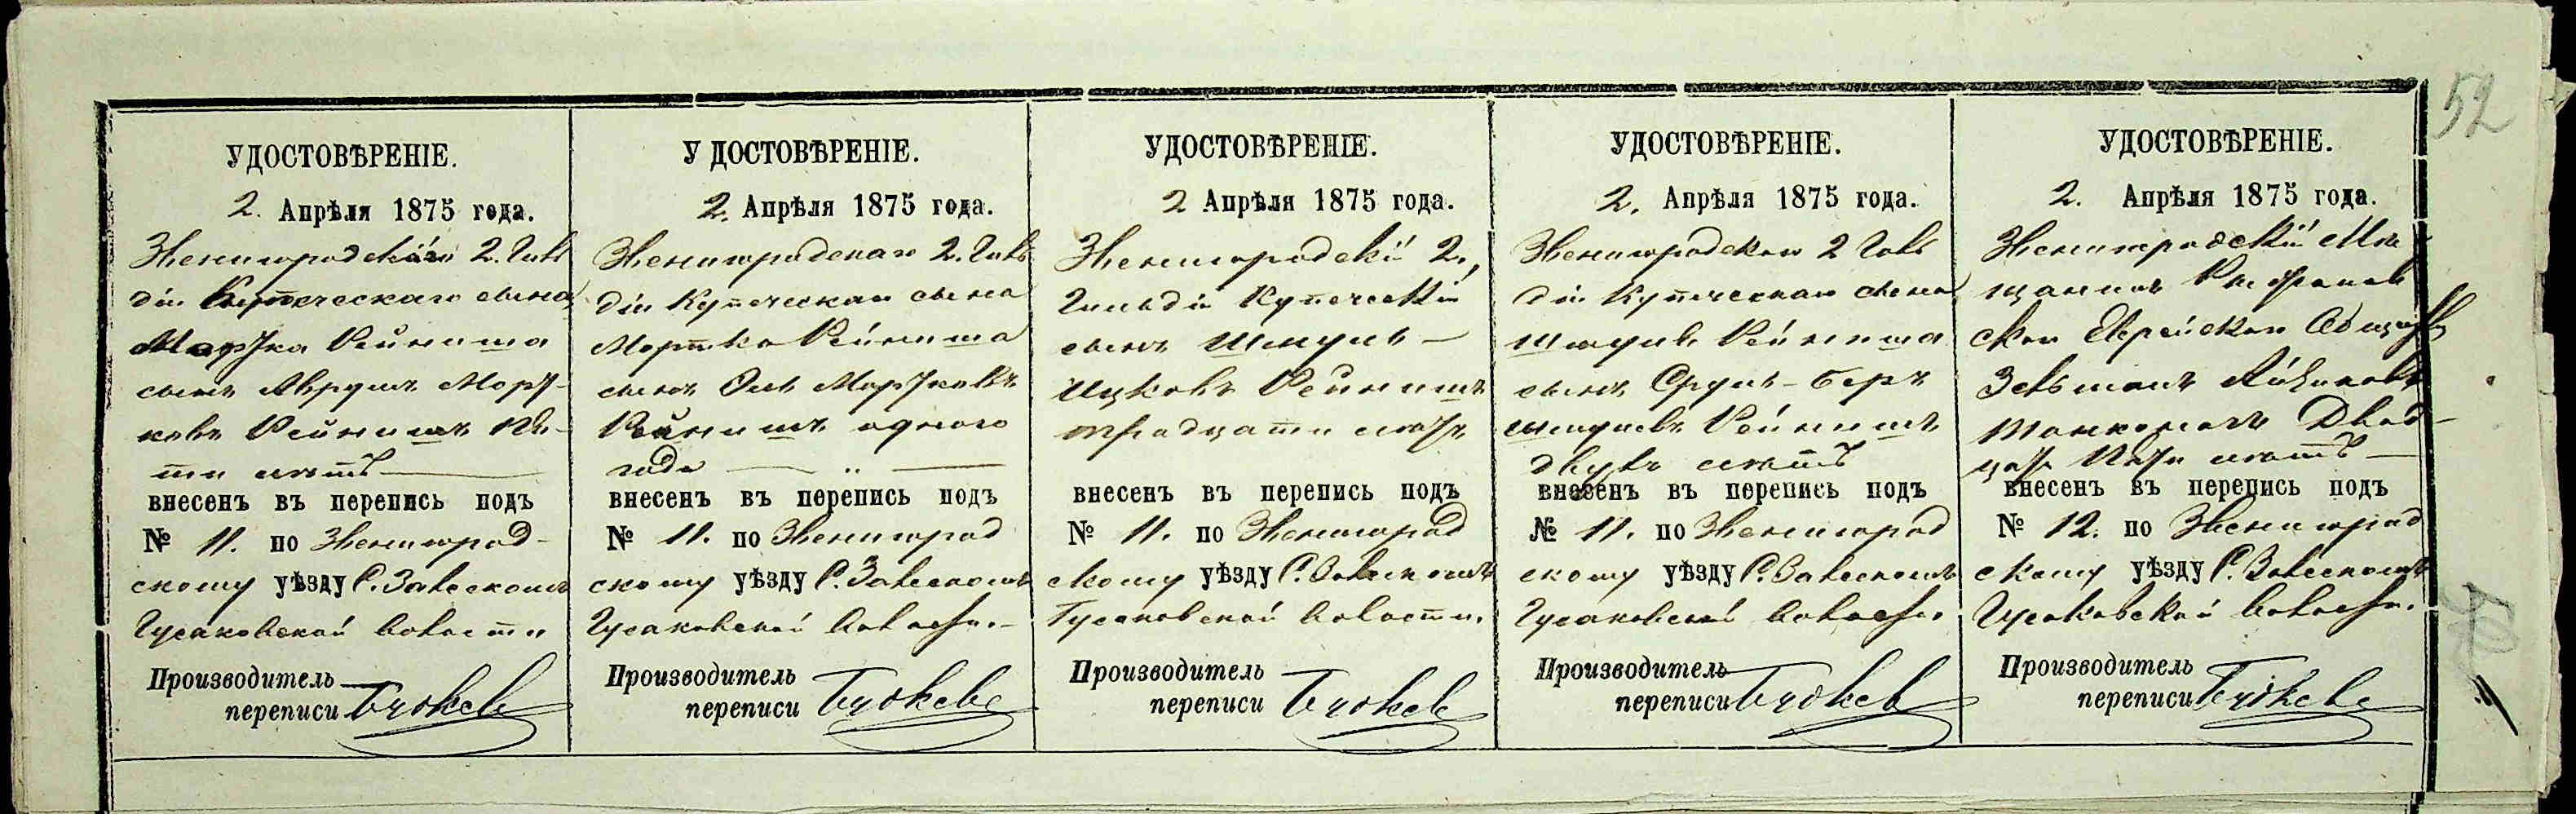 52
УДОСТОВѢРЕНІЕ.
2. Апрѣля 1875 года.
Звенигородскаго 2. Гиль
діи Купеческаго сына
Мортка Рейниша
сынъ Аврумъ Морт-
ковъ Рейнишъ Пя-
ти лѣтъ —
внесенъ въ перепись подъ
№ 11. по Звенигород-
скому уѣзду С.
Гусаковской волости
Производитель
переписи
УДОСТОВѢРЕНІЕ.
2. Апрѣля 1875 года.
Звенигородскаго 2. Гиль
діи Купеческаго сына
Мортка Рейниша
сынъ Мортковъ
Рейнишъ одного
года — " —
внесенъ въ перепись подъ
№ 11. по Звенигород
скому уѣзду С.
Гусаковской волости. -
Производитель
переписи
УДОСТОВѢРЕНІЕ.
2 Апрѣля 1875 года.
Звенигородскій 2.
Гильдіи Купеческій
сынъ Шмуль —
Ицковъ Рейнишъ
тридцати лѣтъ
внесенъ въ перепись подъ
№ 11. по Звенигород
скому уѣзду С.
Гусаковской волости.
Производитель
переписи
УДОСТОВѢРЕНІЕ.
2. Апрѣля 1875 года.
Звенигородскаго 2 Гиль
діи Купеческаго сына
Шмуля Рейниша
сынъ Сруль-Беръ
Шмулевъ Рейнишъ
двухъ лѣтъ
внесенъ въ перепись подъ
№ 11. по Звенигород
скому уѣзду С.
Гусаковской волости
Производитель
переписи
УДОСТОВѢРЕНІЕ.
2. Апрѣля 1875 года.
Звенигородскій Мѣ
щанинъ
скаго Еврейскаго Общества
Зельманъ
Двад-
цати Пяти лѣтъ —
внесенъ въ перепись подъ
№ 12. по Звенигород
скому уѣзду С.
Гусаковской волости.
Производитель
переписи